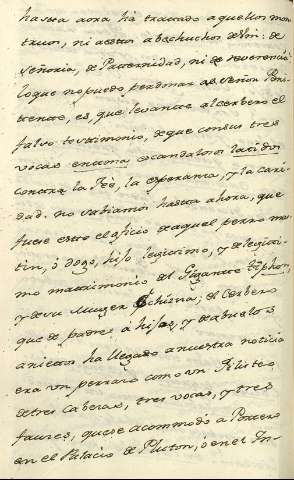 hasta aora ha tratado aquellos mons
truos, ni a estos abechuchos de Vm: de
Señoria, de Paternidad, ni de reverencia
lo que no puedo perdonar al señor Peni
tente, es, que levante al cerbero el
falso testimonio, de que con sus tres
vocas entona escandalosos latidos
contra la Feè, la esperanza, y la cari
dad. no sabiamos hasta ahora, que
fuese este el oficio de aquel perro mas
tin, ó dogo, hijo legitimo, y de legiti
mo matrimonio del Gigante Typhon,
y de su Muger Echizna; el Cerbero
que de padres á hijos, y de abuelos
a nietos ha llegado a nuestra noticia
era un perrazo como un Filisteo
de tres cabezas, tres vocas, y tres
fauces, que se acommodó a Portero
en el Palacio de Pluton, ó en el In-